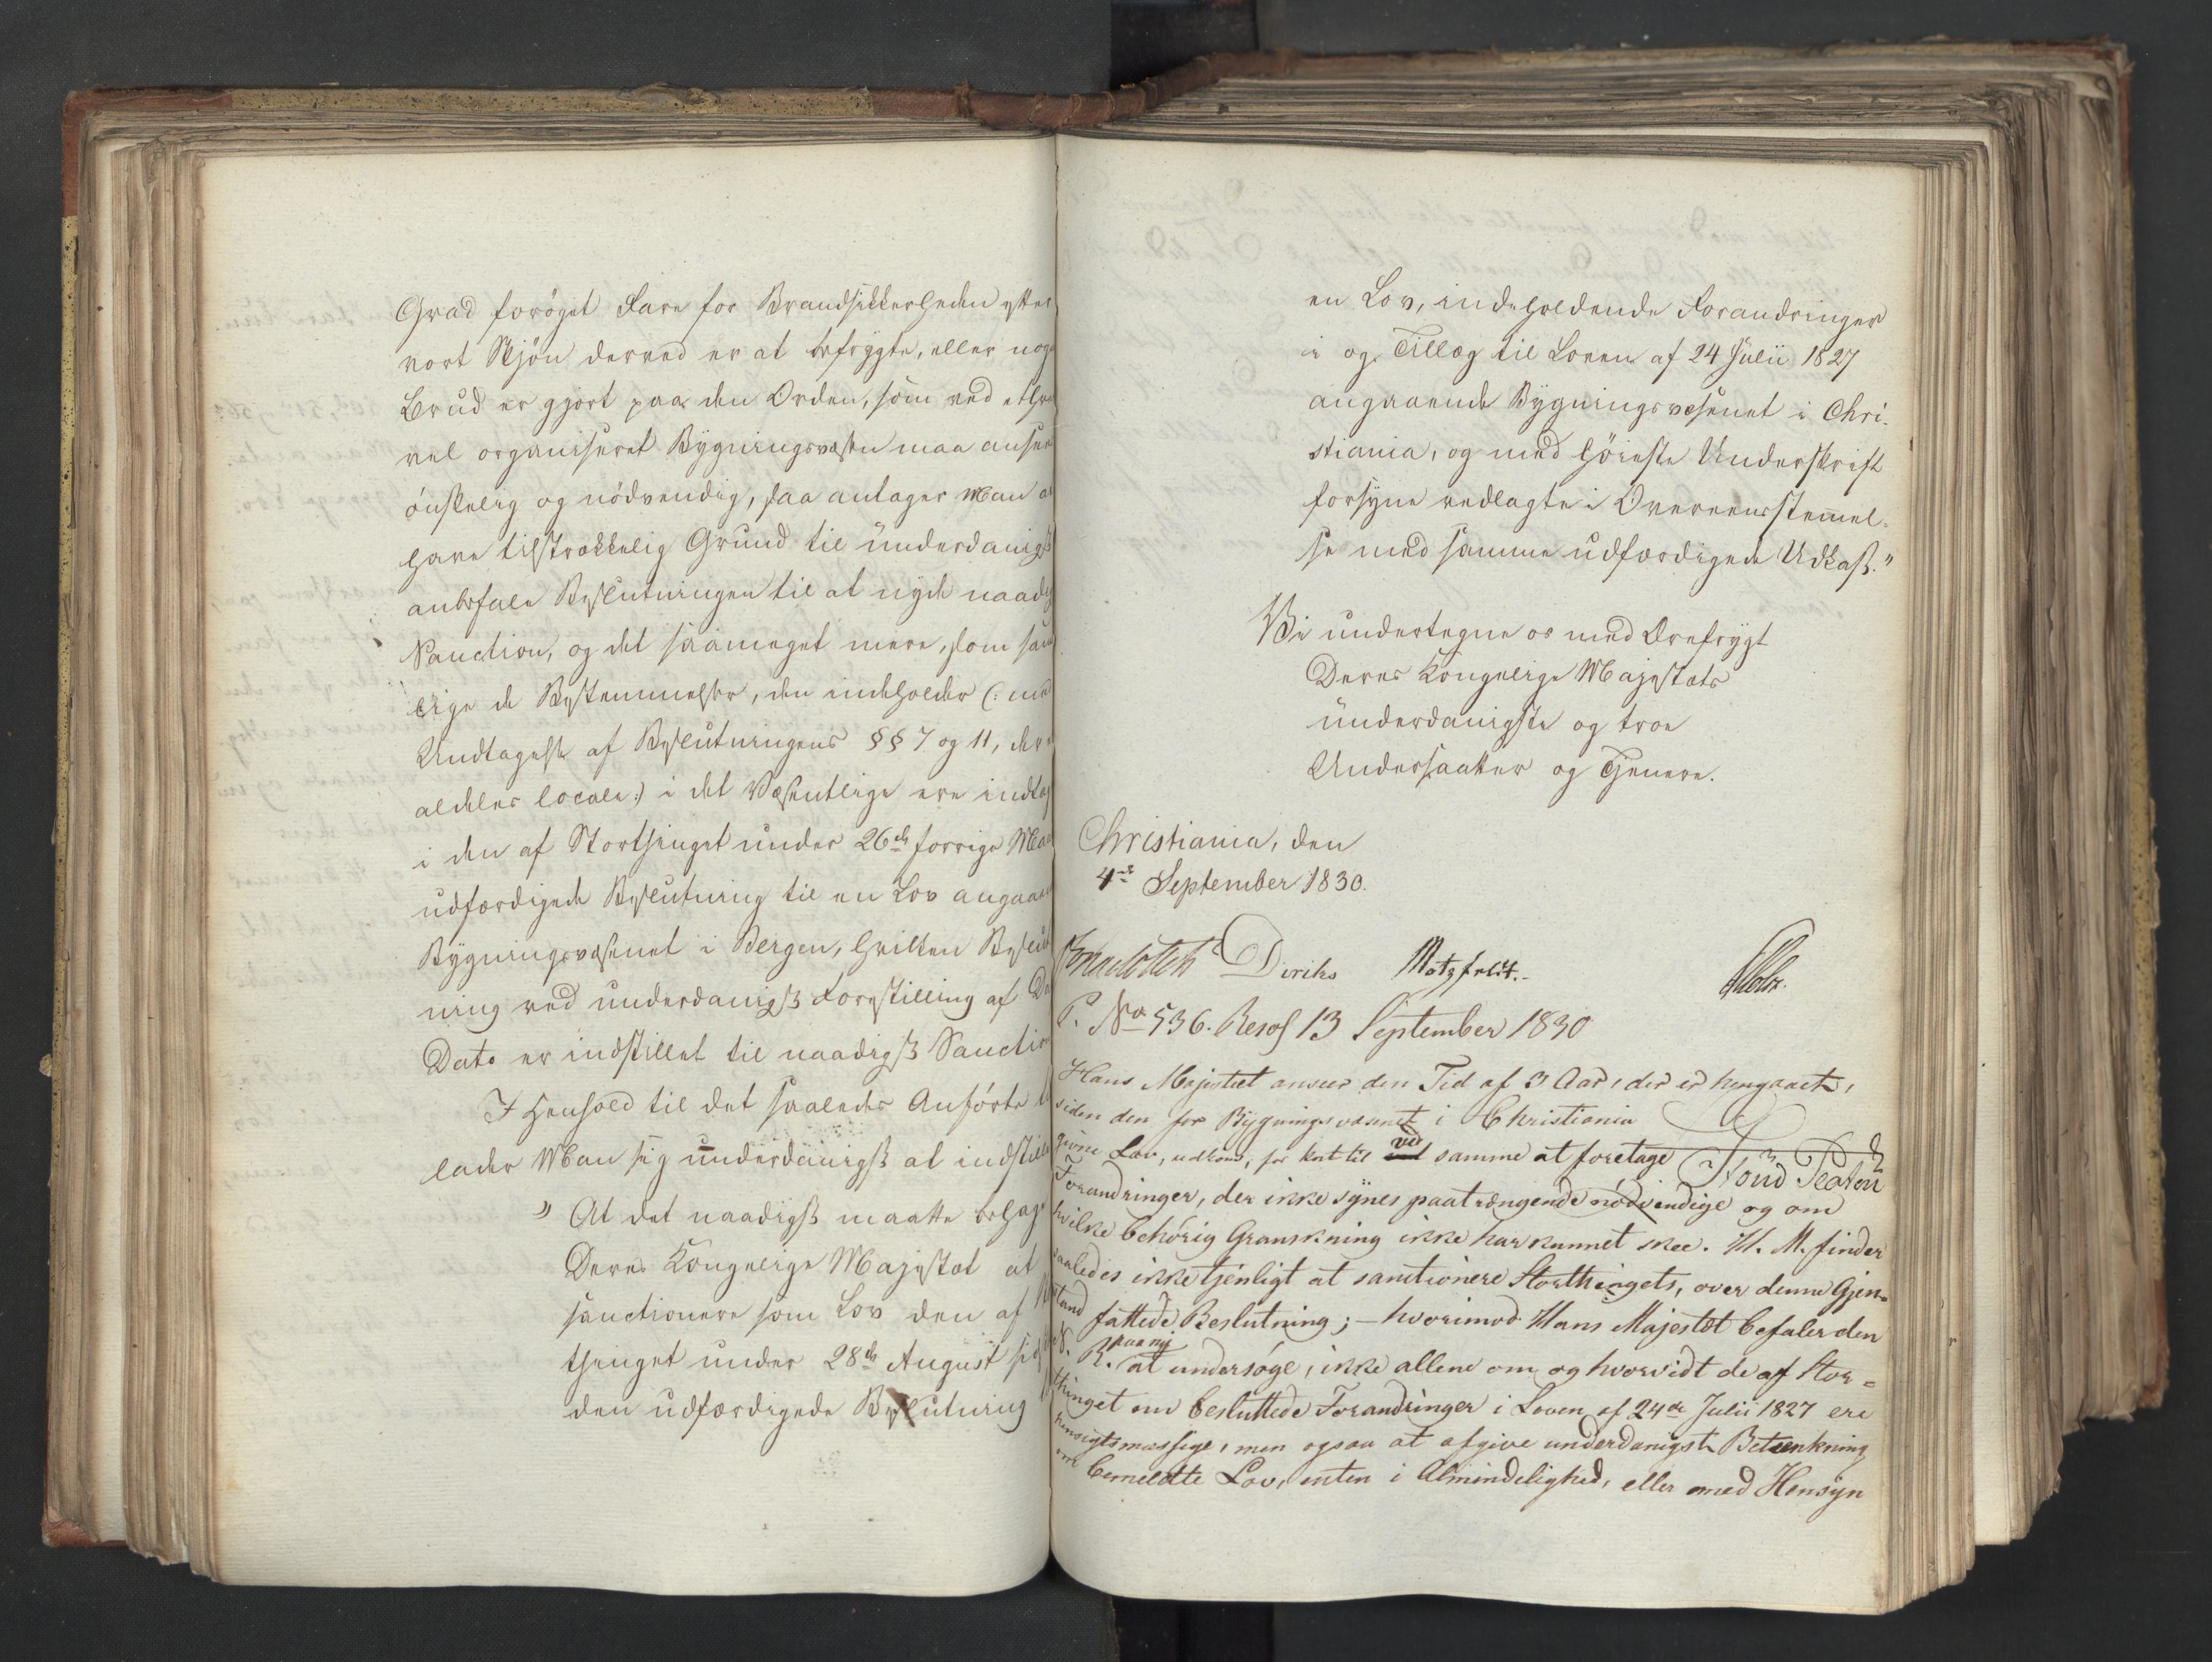 Grad forøget Fare for Brandsikkerheden efter
vort Skjøn derved er at befrygte, eller nog
Brud er gjort paa den Orden, som ved ethve
vel organiseret Bygningsvæsen maa ansee
ønskelig og nødvendig, saa antager Man a
have tilstrækkelig Grund til underdanigst
anbefale Beslutningen til at nyde naadig
Sanction, og det saameget mere, som sam
lige de Bestemmelser, den indeholder (: med
Undtagelse af Beslutningens §§ 7 og 11, der e
aldeles locale:) i det Væsentlige ere indtag
i den af Storthinget under 26de forrige Maa
udfærdigede Beslutning til en Lov angaaen
Bygningsvæsenet i Bergen, hvilken Beslut
ning ved underdanigst Forestilling af D
Dato er indstillet til naadigst Sanction
I Henhold til det saaledes Anførte
lader Man sig underdanigst at indstille
" At det naadigst maatte behage
Deres Kongelige Majestæt at
sanctionere som Lov den af
thinget under 28de August sid
den udfærdigede Beslutning
en Lov, indeholdende Forandringer
i og Tillæg til Loven af 24 Julii 1827
angaaende Bygningsvæsenet i Chri-
stiania, og med høieste Underskrift
forsyne vedlagte i Overeensstemmel-
se med samme udfærdigede Udkast."
Vi undertegne os med Ærefrygt
Deres Kongelige Majestæts
underdanigste og troe
Undersaatter og Tjenere.
Christiania, den
4de September 1830.
Diriks Motzfeldt.
P. No 536. Resol 13 September 1830
Hans Majestæt anseer den Tid af 3 Aar, der er hengaaet,
siden den for Bygningsvæsenet i Christiania
givne Lov, udkom, for kort til ved samme at foretage
Forandringer, der ikke synes paatrængende nødvendige og om
hvilke behørig Granskning ikke har kunnet skee. H. M. finder
saaledes ikke tjenligt at sanctionere Storthingets, over denne Gjen-
stand fattede Beslutning; – hvorimod Hans Majestæt befaler den
N. R. paa ny at undersøge, ikke allene om og hvorvidt de af Stor-
thinget om besluttede Forandringer i Loven af 24de Julii 1827 ere
hensigtsmæssige, men ogsaa at afgive underdanigst Betænkning
om bemeldte Lov, enten i Almindelighed, eller med Hensyn